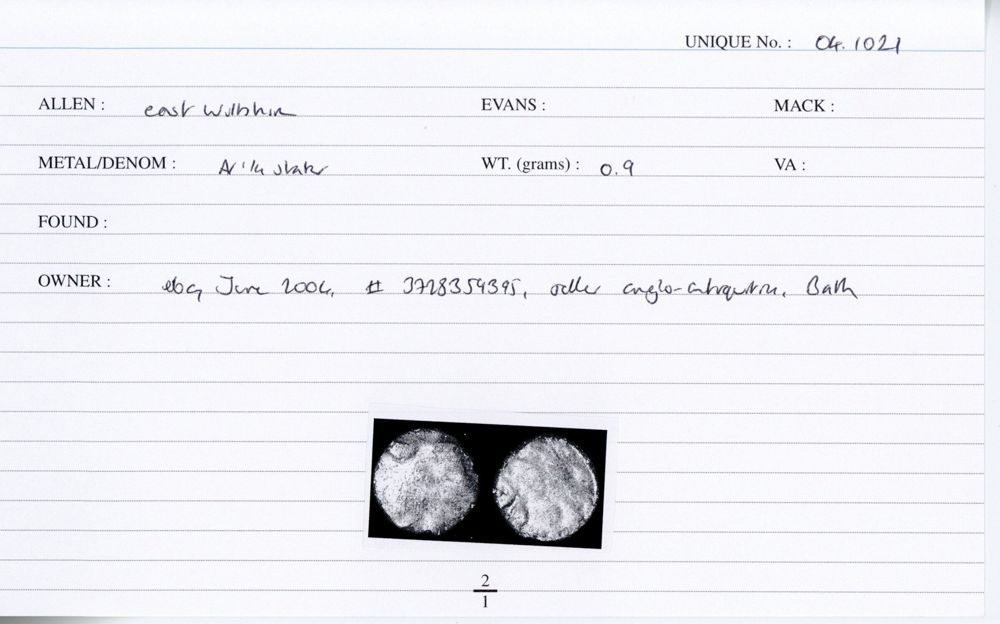 UNIQUE No. : 04.1021
ALLEN : east Wiltshire EVANS : MACK :
METAL/DENOM : Ar 1/4 stater WT. (grams) : 0.9 VA :
FOUND :
OWNER : ebay June 2004, # 3728359395, seller anglo-antiquities, Bath
2
1